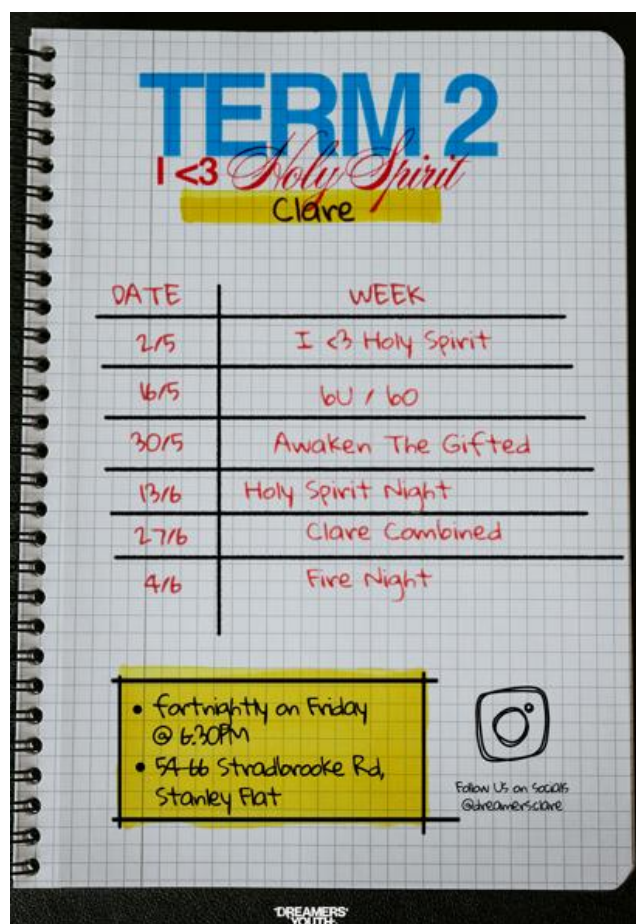 TERM 2
I <3 Holy Spirit
Clare
DATE WEEK
2/5 I <3 Holy Spirit
16/5 bU / bO
30/5 Awaken The Gifted
13/6 Holy Spirit Night
27/6 Clare Combined
4/6 Fire Night
• fortnightly on Friday
@ 6.30PM
• 54-66 Stradbrooke Rd,
Stanley Flat
Follow Us on Socials
@dreamersclare
'DREAMERS'
YOUTH.